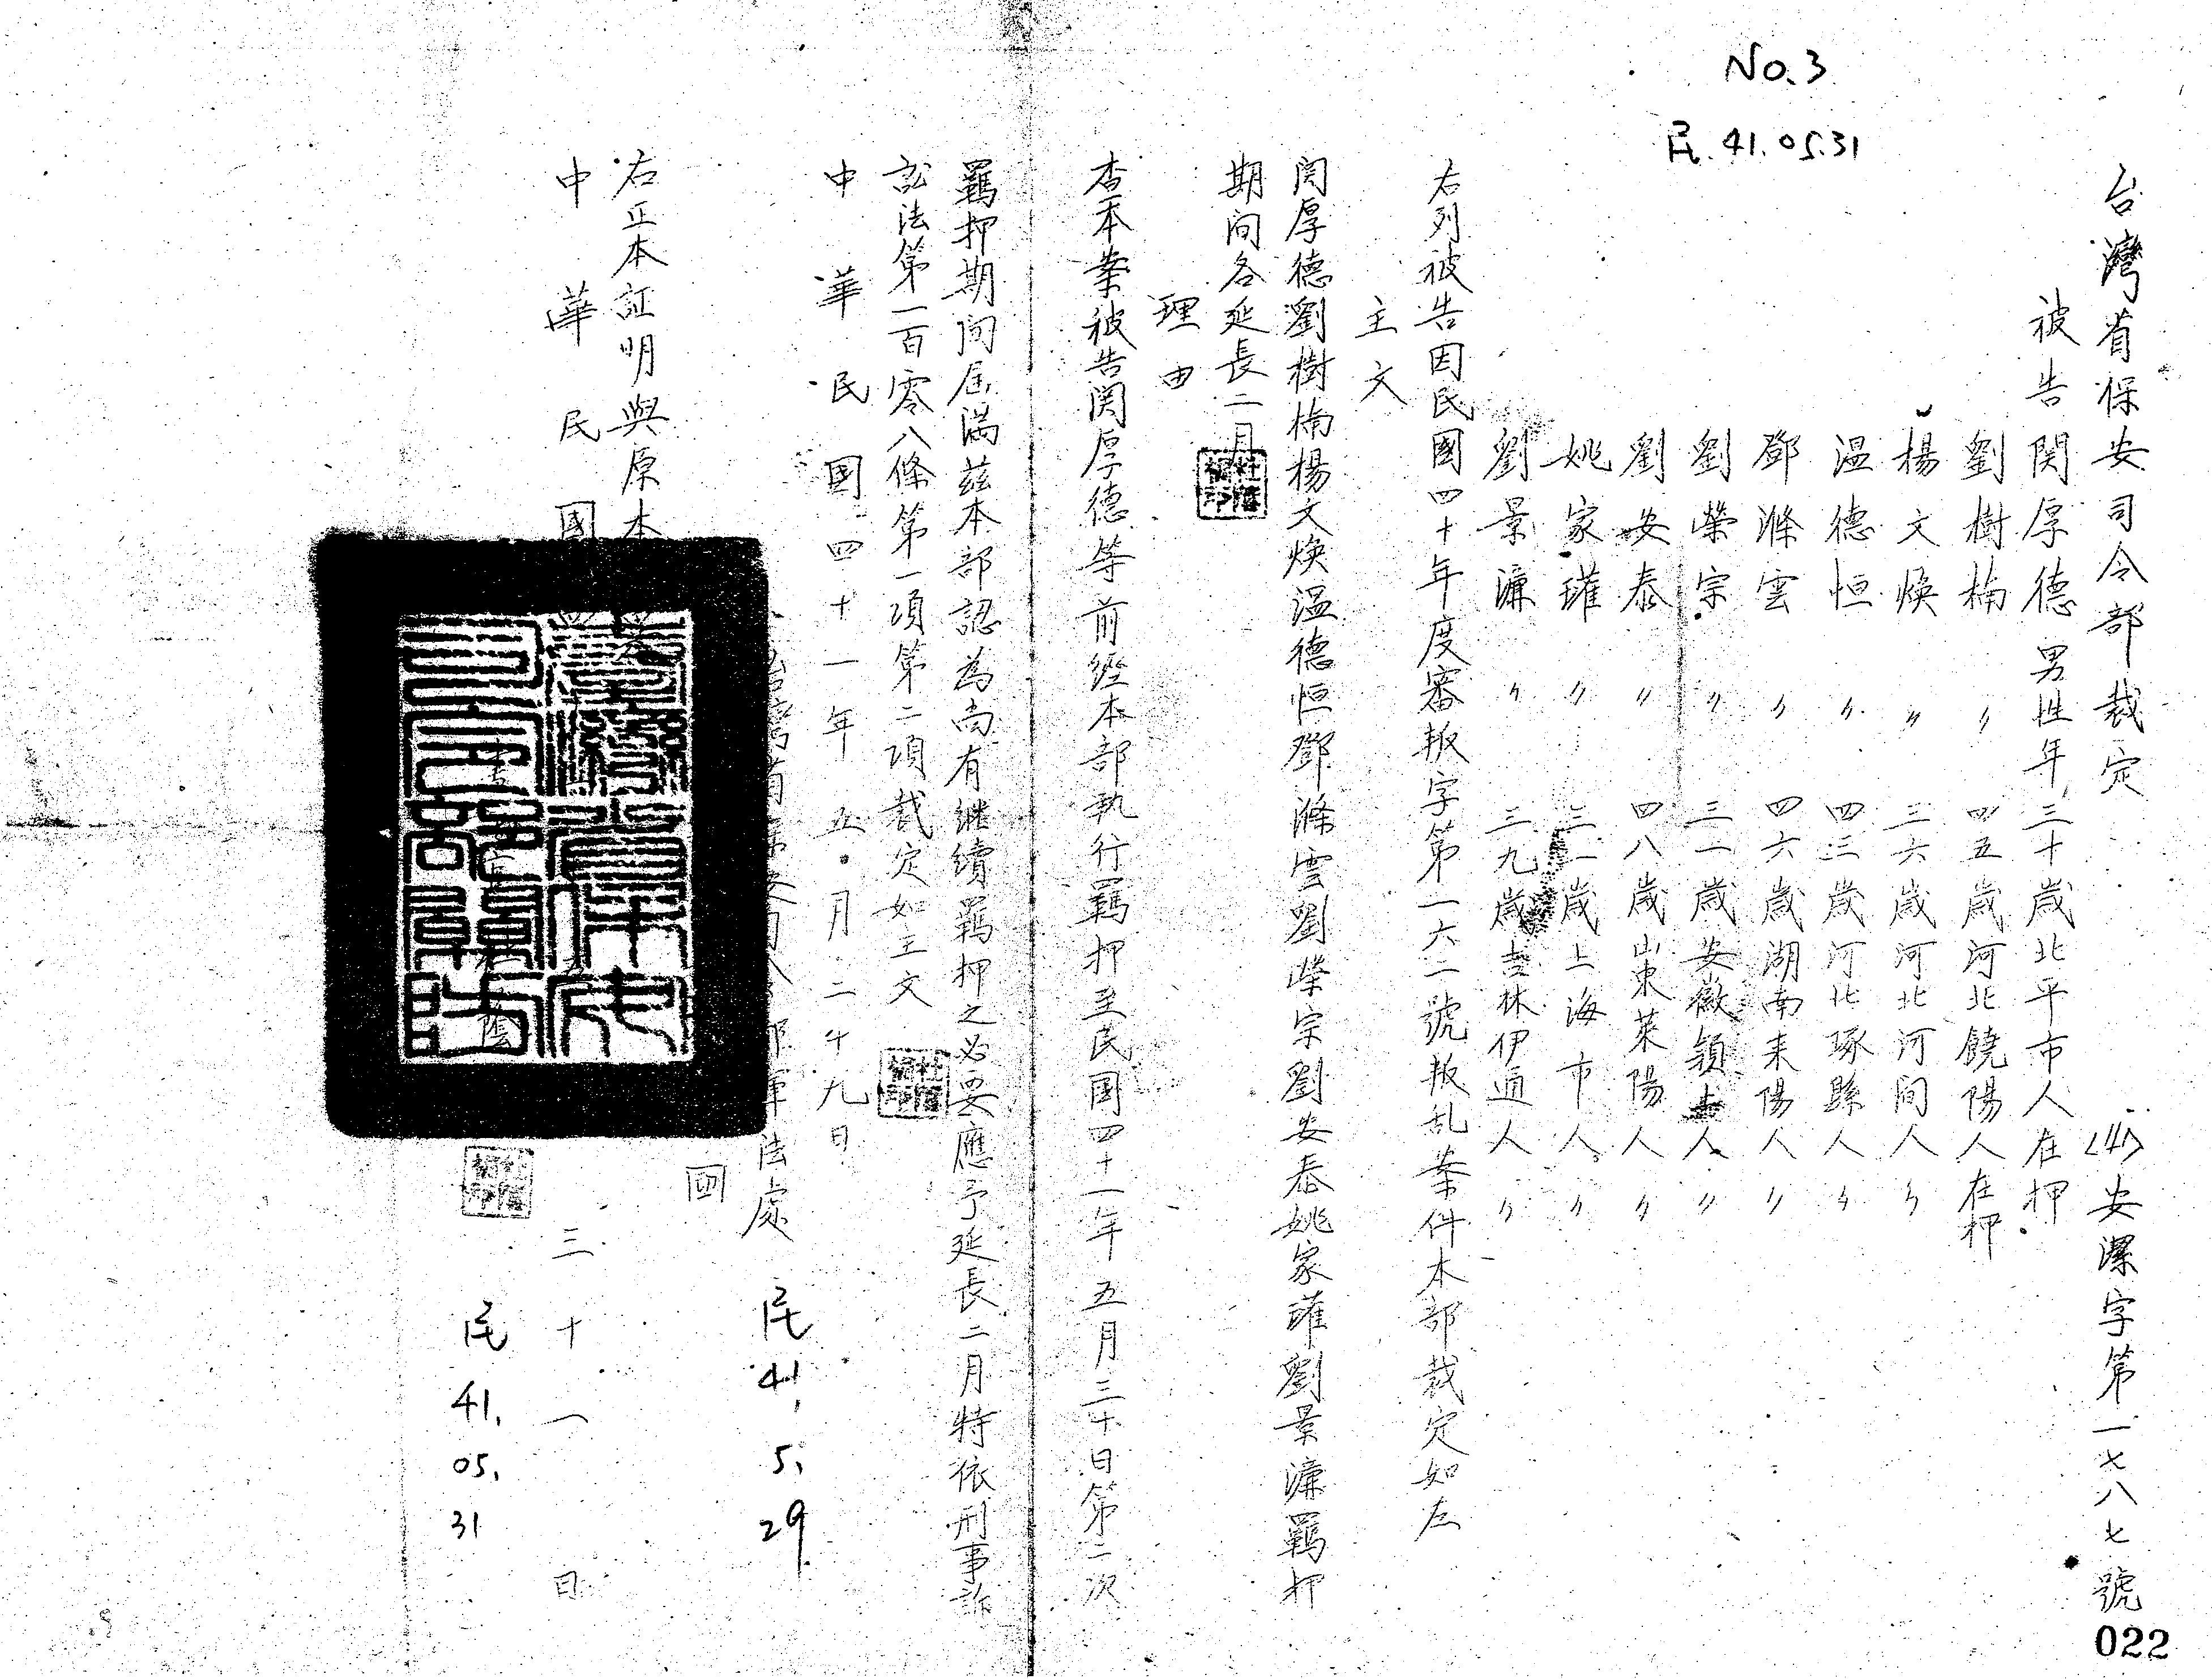 No.3
民.41.05.31
台灣省保安司令部裁定 (41)安潔字第一七八七號
被告 関厚德 男性年三十歲北平市人在押
劉樹楠 〃 四五歲河北饒陽人在押
楊文煥 〃 三六歲河北河间人〃
溫德恒 〃 四三歲河北琢縣人〃
鄧滌雲 〃 四六歲湖南耒陽人〃
劉榮宗 〃 三一歲安徽穎上人〃
劉安泰 〃 四八歲山東萊陽人〃
姚家璀 〃 三一歲上海市人〃
劉景濂 〃 三九歲吉林伊通人〃
右列被告因民國四十年度審叛字第一六二號叛乱案件本部裁定如左
主文
関厚德劉樹楠楊文煥溫德恒鄧滌雲劉榮宗劉安泰姚家璀劉景濂羈押
期间各延長二月
理由
查本案被告関厚德等前經本部执行羈押至民国四十一年五月三十日第二次
羈押期间屆滿茲本部認為尚有継續羈押之必要應予延長二月特依刑事訴
訟法第一百零八條第一項第二項裁定如主文
中華民國四十一年五月二十九日
法處
民41.5.29
右正本証明與原本
中華民國 三十一日
民41.05.31
022